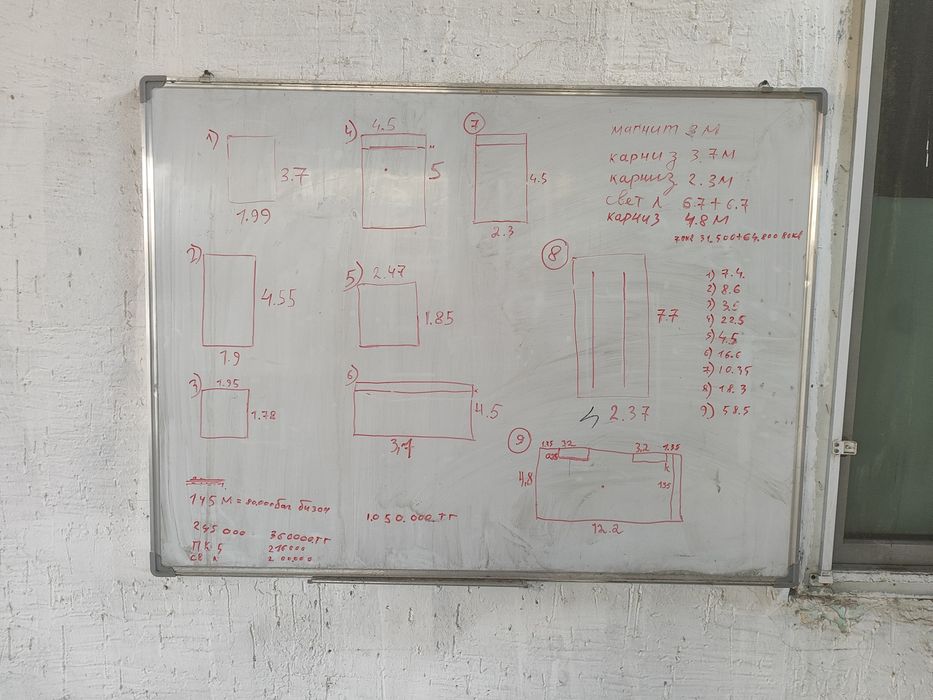 1)
3.7
1.99
2)
4.55
1.9
3)
1.95
1.78
4)
4.5
5
5)
2.47
1.85
6)
4.5
7
4.5
2.3
8
7.7
2.37
9
1.35 3.2 3.2 1.35
4.8
к
135
12.2
магнит 3 м
карниз 3.7 м
карниз 2.3 м
свет л 6.7 + 6.7
карниз 4.8 м
1) 7.4
2) 8.6
3) 3.5
4) 22.5
5) 4.5
6) 16.6
7) 10.35
8) 18.3
9) 58.5
145 м = 80.000 баг бизон
245 000 360000 тг
П К 5 216000
св л 200.000
1.050.000 тг